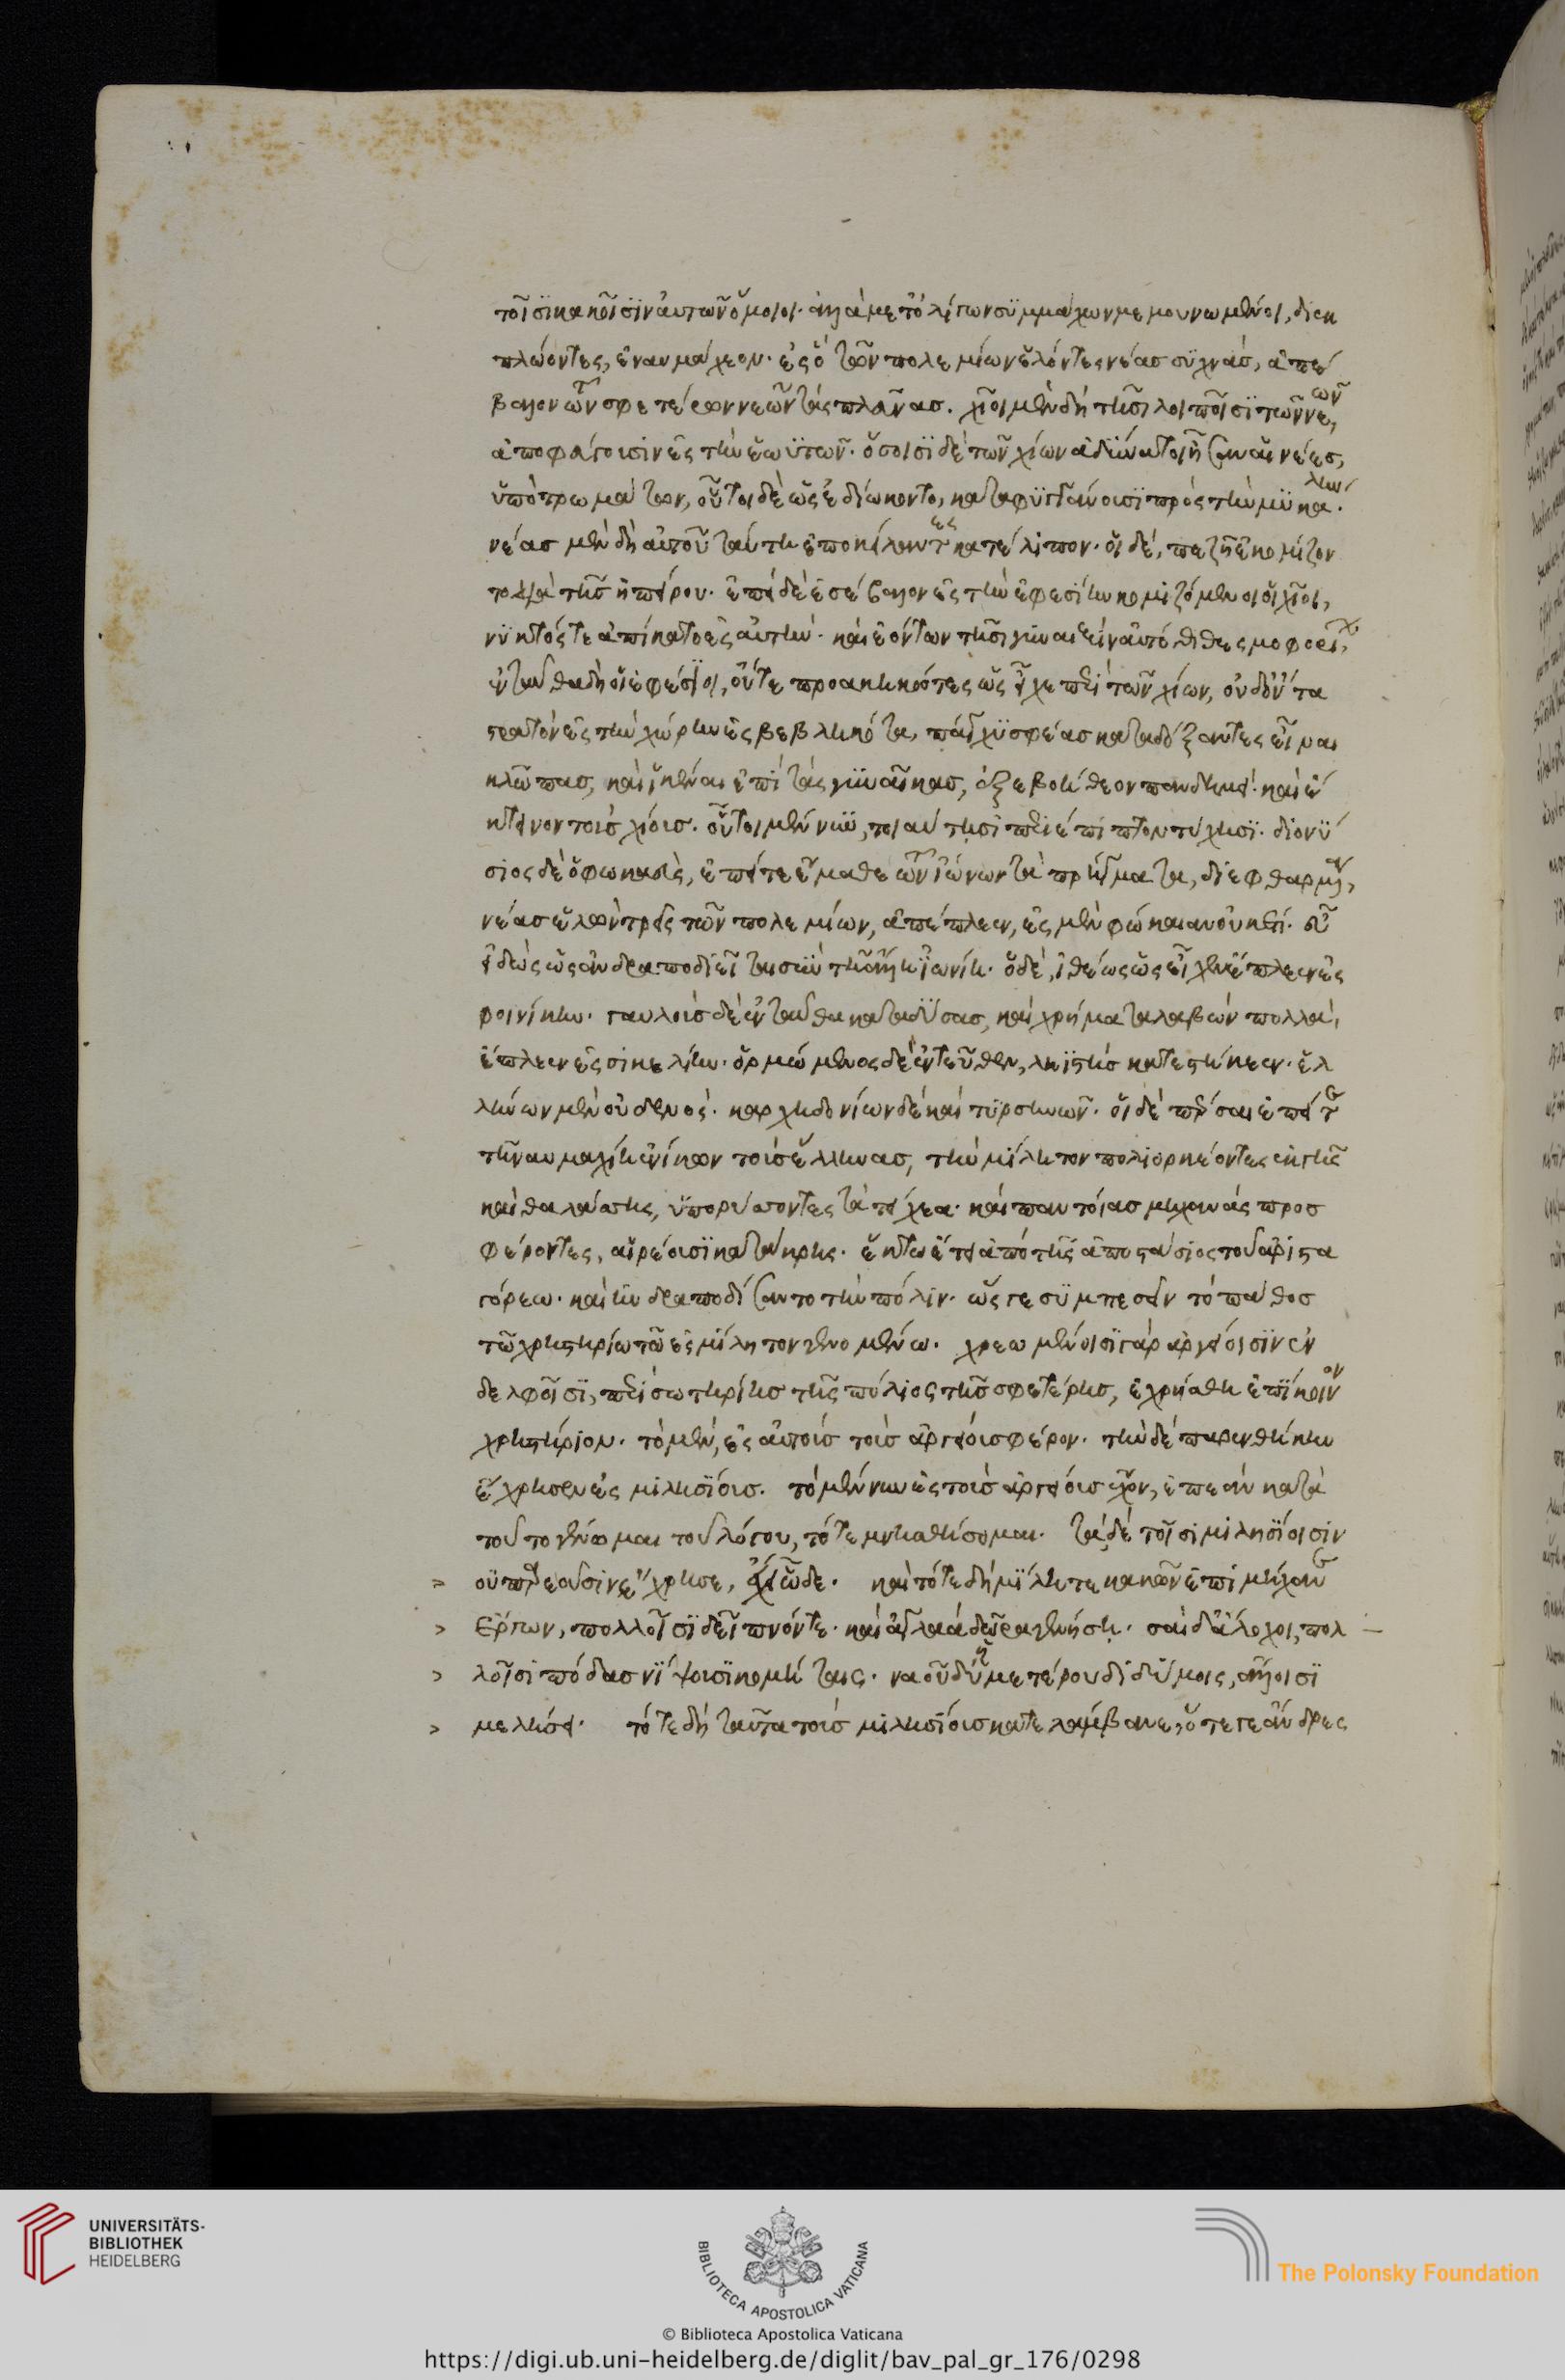 τοῖσι κακοῖσιν αὐτῶν ὅμοιοι· ἀλλὰ μετ' ὀλίγων συμμάχων μεμουνωμένοι, διεκ
πλώοντες, ἐναυμάχεον· ἐς ὃ τῶν πολεμίων ἑλόντες νέας συχνάς, ἀπέ
βαλον τῶν σφετέρων νεῶν τὰς πλεῦνας. χῖοι μὲν δὴ τῆσι λοιποῖσι τῶν νεῶν,
ἀποφεύγουσιν ἐς τὴν ἑωυτῶν· ὅσοισι δὲ τῶν χίων ἀδύνατοι ἦσαν αἱ νέες,
ὑπὸ τρωμάτων, οὗτοι δὲ ὡς ἐδιώκοντο, καταφυγγάνουσι πρὸς τὴν μυκάλην.
νέας μὲν δὴ αὐτοῦ ταύτῃ ἐποκείλαντες κατέλιπον· οἱ δέ, πεζῇ ἐκομίζον
το διὰ τῆς ἠπείρου· ἐπεὶ δὲ ἐσέβαλον ἐς τὴν ἐφεσίην κομιζόμενοι οἱ χῖοι,
νυκτός τε ἀπίκατο ἐς αὐτήν· καὶ ἐόντων τῆσι γυναιξὶν αὐτόθι θεσμοφορίων,
ἐνταῦθα δὴ οἱ ἐφέσιοι, οὔτε προακηκοότες ὡς εἶχε περὶ τῶν χίων, ἰδόντες τε
στρατὸν ἐς τὴν χώρην ἐσβεβληκότα, πάγχυ σφέας καταδόξαντες εἶναι
κλῶπας, καὶ ἰέναι ἐπὶ τὰς γυναῖκας, ἐξεβοήθεον πανδημεί· καὶ ἔ
κτεινον τοὺς χίους. οὗτοι μέν νυν, τοιαύτῃσι περιέπιπτον τύχῃσι· διονύ
σιος δὲ ὁ φωκαεύς, ἐπείτε ἔμαθε τῶν ἰώνων τὰ πρήγματα, διεφθαρμένα,
νέας ἑλὼν τρεῖς τῶν πολεμίων, ἀπέπλεεν, ἐς μὲν φώκαιαν οὐκέτι· εὖ
εἰδὼς ὡς ἀνδραποδιεῖται σὺν τῇ ἄλλῃ ἰωνίῃ· ὁ δέ, ἰθέως ὡς εἶχεν ἔπλεεν ἐς
φοινίκην· γαυλοὺς δὲ ἐνταῦθα καταδύσας, καὶ χρήματα λαβὼν πολλά,
ἔπλεεν ἐς σικελίην· ὁρμώμενος δὲ ἐντεῦθεν, ληϊστὴς κατεστήκεεν· ἑλ
λήνων μὲν οὐδενός· καρχηδονίων δὲ καὶ τυρσηνῶν· οἱ δὲ πέρσαι ἐπείτε
τῇ ναυμαχίῃ ἐνίκων τοὺς ἕλληνας, τὴν μίλητον πολιορκέοντες ἐκ γῆς
καὶ θαλάσσης, ὑπορύσσοντες τὰ τείχεα· καὶ παντοίας μηχανὰς προσ
φέροντες, αἱρέουσι κατάκρης· ἕκτῳ ἔτει ἀπὸ τῆς ἀποστάσιος τοῦ ἀριστα
γόρεω· καὶ ἠνδραποδίσαντο τὴν πόλιν· ὥστε συμπεσεῖν τὸ πάθος
τῷ χρηστηρίῳ τῷ ἐς μίλητον γενομένῳ. χρεωμένοισι γὰρ ἀργείοισιν ἐν
δελφοῖσι, περὶ σωτηρίης τῆς πόλιος τῆς σφετέρης, ἐχρήσθη ἐπίκοινον
χρηστήριον. τὸ μέν, ἐς αὐτοὺς τοὺς ἀργείους φέρον· τὴν δὲ παρενθήκην
ἔχρησεν ἐς μιλησίους. τὸ μέν νυν ἐς τοὺς ἀργείους ἔχον, ἐπεὰν κατὰ
τοῦτο γένωμαι τοῦ λόγου, τότε μνησθήσομαι. τὰ δὲ τοῖσι μιλησίοισιν
> οὐ παρεοῦσιν ἔχρησε, ἔχει ὧδε· καὶ τότε δὴ μίλητε κακῶν ἐπιμήχανε
> ἔργων, πολλοῖσι δεῖπνόν τε· καὶ ἀγλαὰ δῶρα γενήσῃ· σαὶ δ' ἄλοχοι, πολ
> λοῖσι πόδας νίψουσι κομήταις· νηοῦ δ' ἡμετέρου διδύμοις, ἄλλοισι
> μελήσει· τότε δὴ ταῦτα τοὺς μιλησίους κατελάμβανε, ὅτε γε ἄνδρες
UNIVERSITÄTS-
BIBLIOTHEK
HEIDELBERG
BIBLIOTECA APOSTOLICA VATICANA
The Polonsky Foundation
© Biblioteca Apostolica Vaticana
https://digi.ub.uni-heidelberg.de/diglit/bav_pal_gr_176/0298